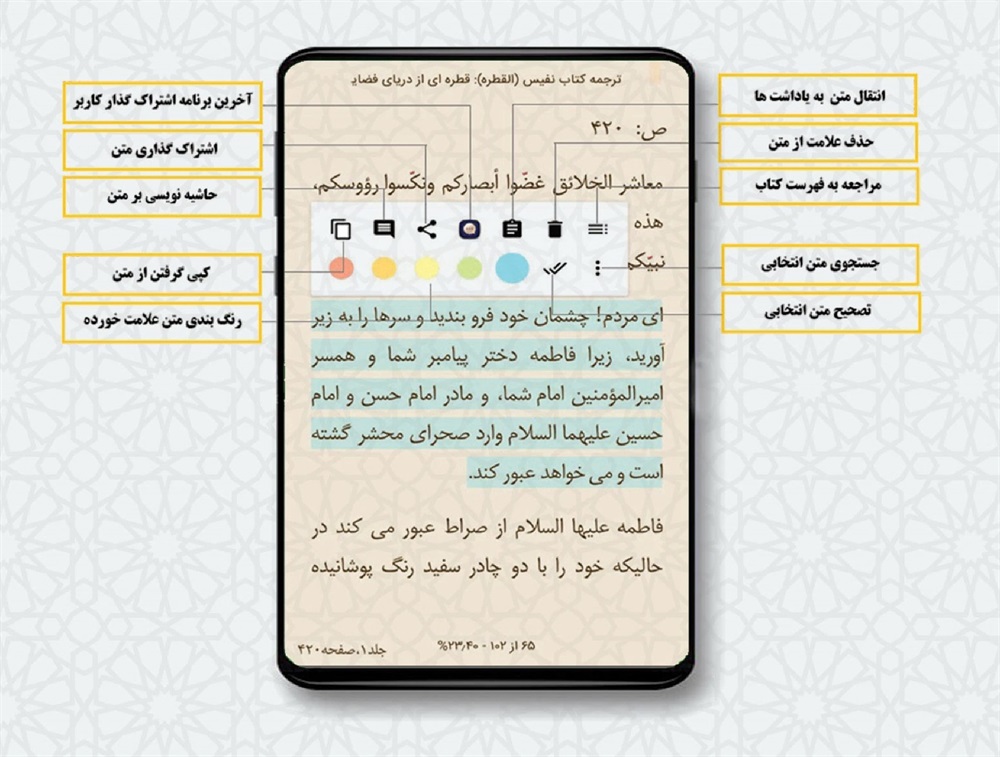 ترجمه کتاب نفیس (القطره): قطره ای از دریای فضایـ
ص: ۴۲۰
معاشر الخلائق غضّوا أبصارکم ونکّسوا رؤوسکم،
هذه
نبیّکم
ای مردم! چشمان خود فرو بندید و سرها را به زیر
آورید، زیرا فاطمه دختر پیامبر شما و همسر
امیرالمؤمنین امام شما، و مادر امام حسن و امام
حسین علیهما السلام وارد صحرای محشر گشته
است و می خواهد عبور کند.
فاطمه علیها السلام از صراط عبور می کند در
حالیکه خود را با دو چادر سفید رنگ پوشانیده
۶۵ از ۱۰۲ - ۲۳٫۴۰%
جلد۱،صفحه۴۲۰
انتقال متن به یاداشت ها
حذف علامت از متن
مراجعه به فهرست کتاب
جستجوی متن انتخابی
تصحیح متن انتخابی
آخرین برنامه اشتراک گذار کاربر
اشتراک گذاری متن
حاشیه نویسی بر متن
کپی گرفتن از متن
رنگ بندی متن علامت خورده